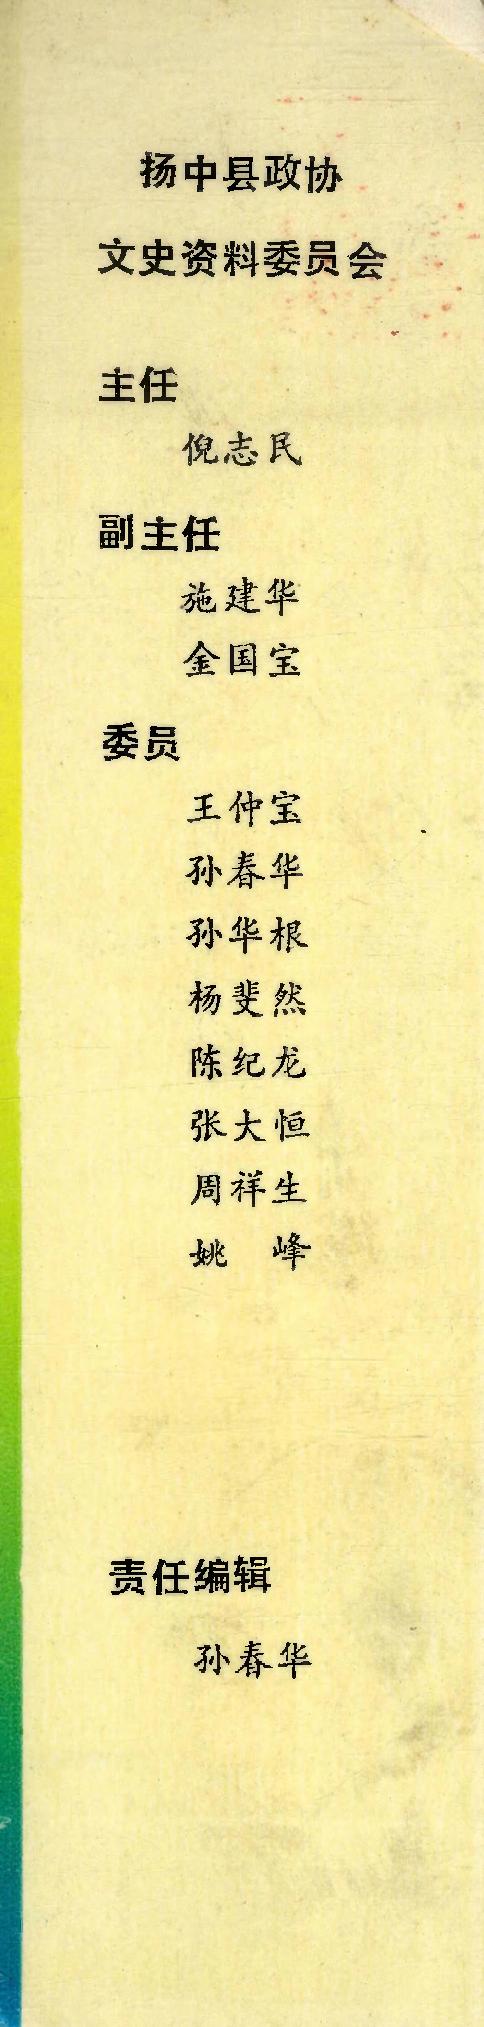 扬中县政协
文史资料委员会
主任
倪志民
副主任
施建华
金国宝
委员
王仲宝
孙春华
孙华根
杨斐然
陈纪龙
张大恒
周祥生
姚　峰
责任编辑
孙春华